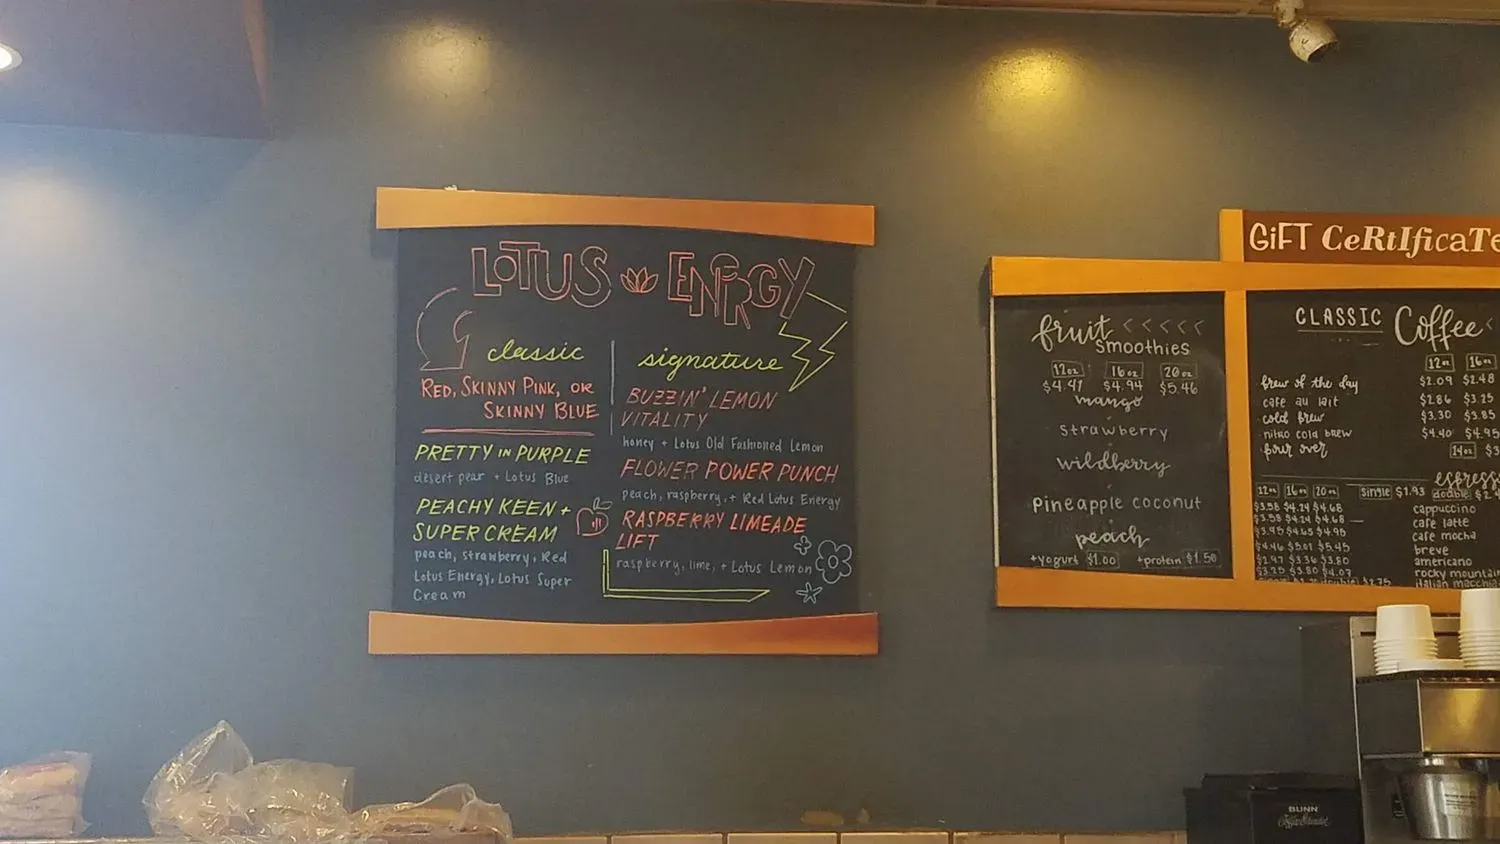 LOTUS ENERGY
classic
RED, SKINNY PINK, OR
SKINNY BLUE
PRETTY IN PURPLE
desert pear + Lotus Blue
PEACHY KEEN +
SUPER CREAM
peach, strawberry, Red
Lotus Energy, Lotus Super
Cream
signature
BUZZIN' LEMON
VITALITY
honey + Lotus Old Fashioned Lemon
FLOWER POWER PUNCH
peach, raspberry, + Red Lotus Energy
RASPBERRY LIMEADE
LIFT
raspberry, lime, + Lotus Lemon
fruit <<<<<
Smoothies
12oz 16oz 20oz
$4.41 $4.94 $5.46
mango
strawberry
wildberry
pineapple coconut
peach
+yogurt $1.00 +protein $1.50
GiFT CeRtIficaTe
CLASSIC Coffee <
12oz 16oz
brew of the day $2.09 $2.48
cafe au lait $2.86 $3.25
cold brew $3.30 $3.85
nitro cold brew $4.40 $4.95
pour over 14oz $3
espresso
12oz 16oz 20oz single $1.93 double $2.4
$3.58 $4.24 $4.68 cappuccino
$3.58 $4.24 $4.68 cafe latte
$3.95 $4.65 $4.95 cafe mocha
$4.46 $5.01 $5.45 breve
$2.97 $3.36 $3.80 americano
$3.25 $3.80 $4.07 rocky mountain
$2.75 italian macchia
BUNN